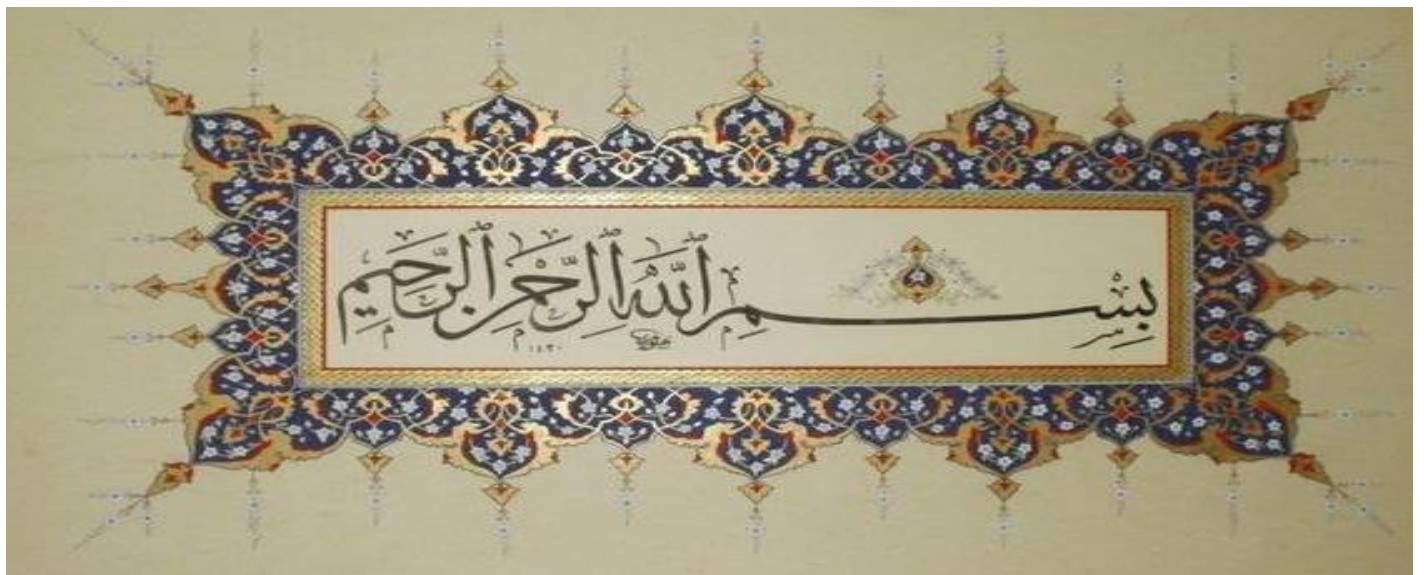 بِسْمِ ٱللَّهِ ٱلرَّحْمَٰنِ ٱلرَّحِيمِ
١٤٣٠